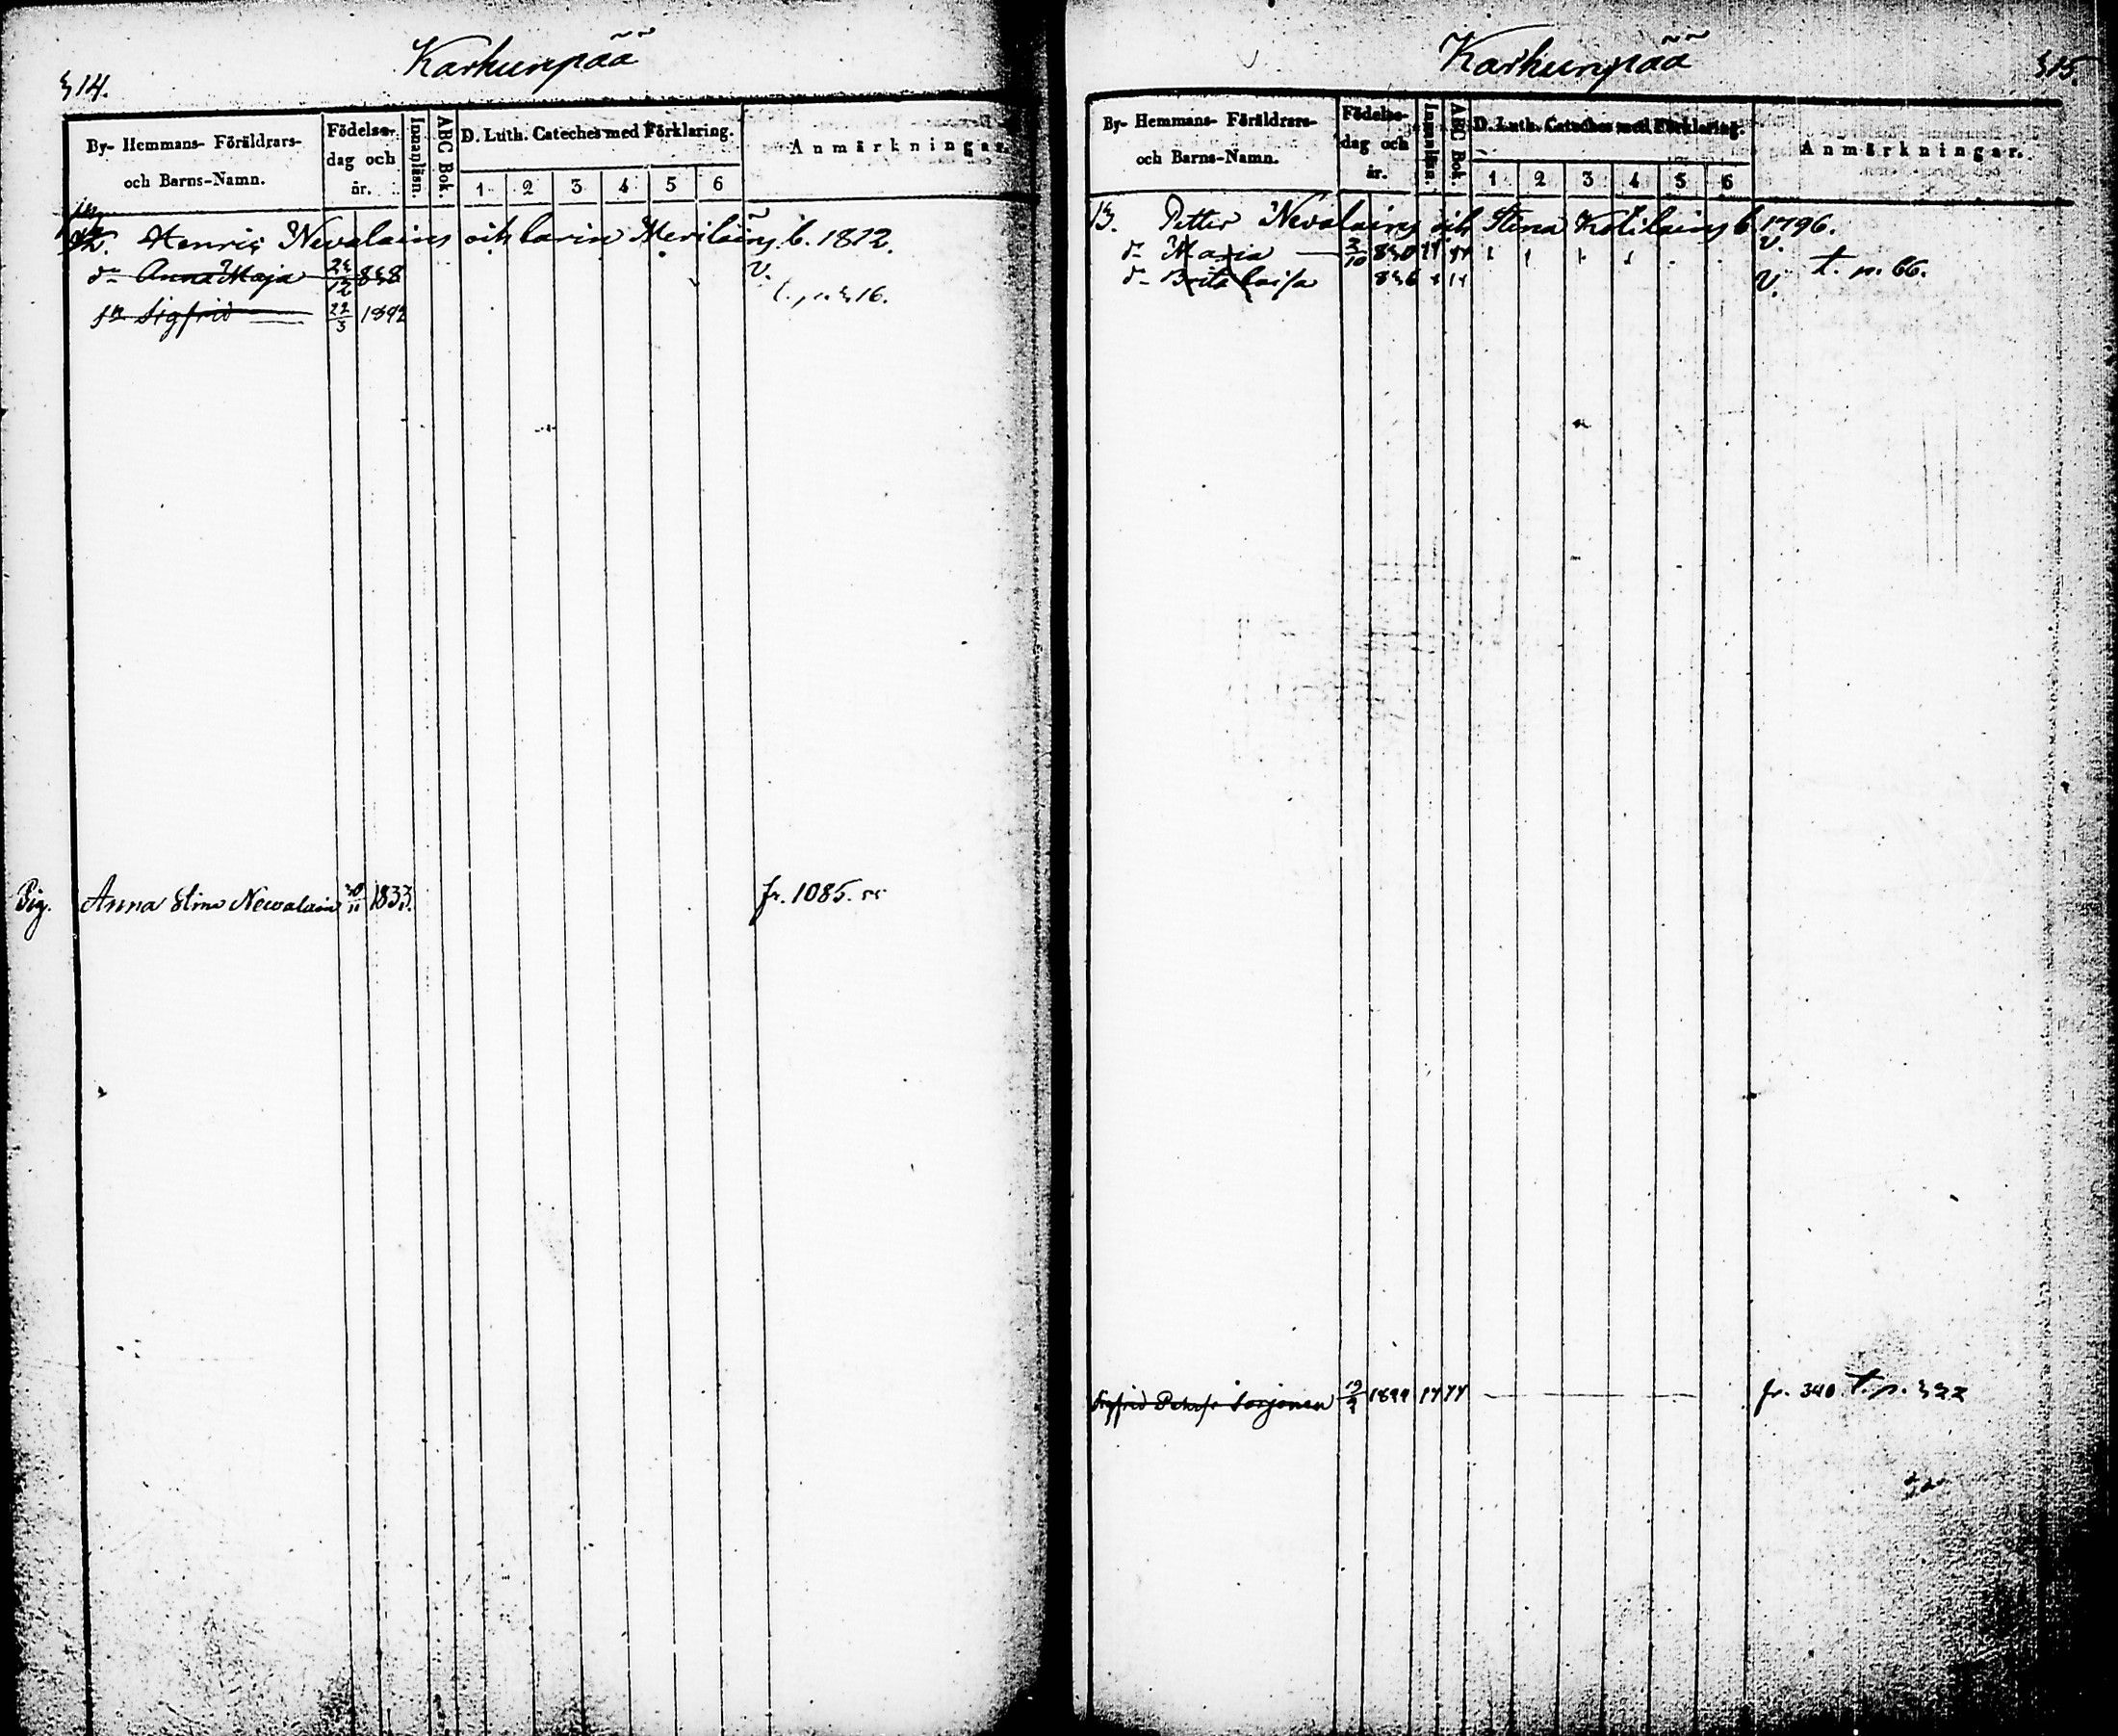 314.
Karhunpää
By- Hemmans- Föräldrars-
och Barns-Namn.
Födelse-
dag och
år.
Innanläsn.
ABC Bok.
D. Luth. Cateches med Förklaring.
1 2 3 4 5 6
Anmärkningar.
Henric Nevalains och Carin Meriläins b. 1812.
dr Anna Maja 24/12 838 V.
t. p. 316.
sn Sigfrid 22/3 1842
Pig. Anna Stina Newalain 30/11 1833. fr. 1085.
Karhunpää
315.
By- Hemmans- Föräldrars-
och Barns-Namn.
Födelse-
dag och
år.
Innanläsn.
ABC Bok.
D. Luth. Cateches med Förklaring.
1 2 3 4 5 6
Anmärkningar.
13. Petter Nevalains och Stina Kotilains b. 1796.
dr Maria 3/10 830 V.
t. p. 66.
dr Brita Caisa 836 V.
Sigfrid Peterss Sorjonen fr. 340. t. p. 322